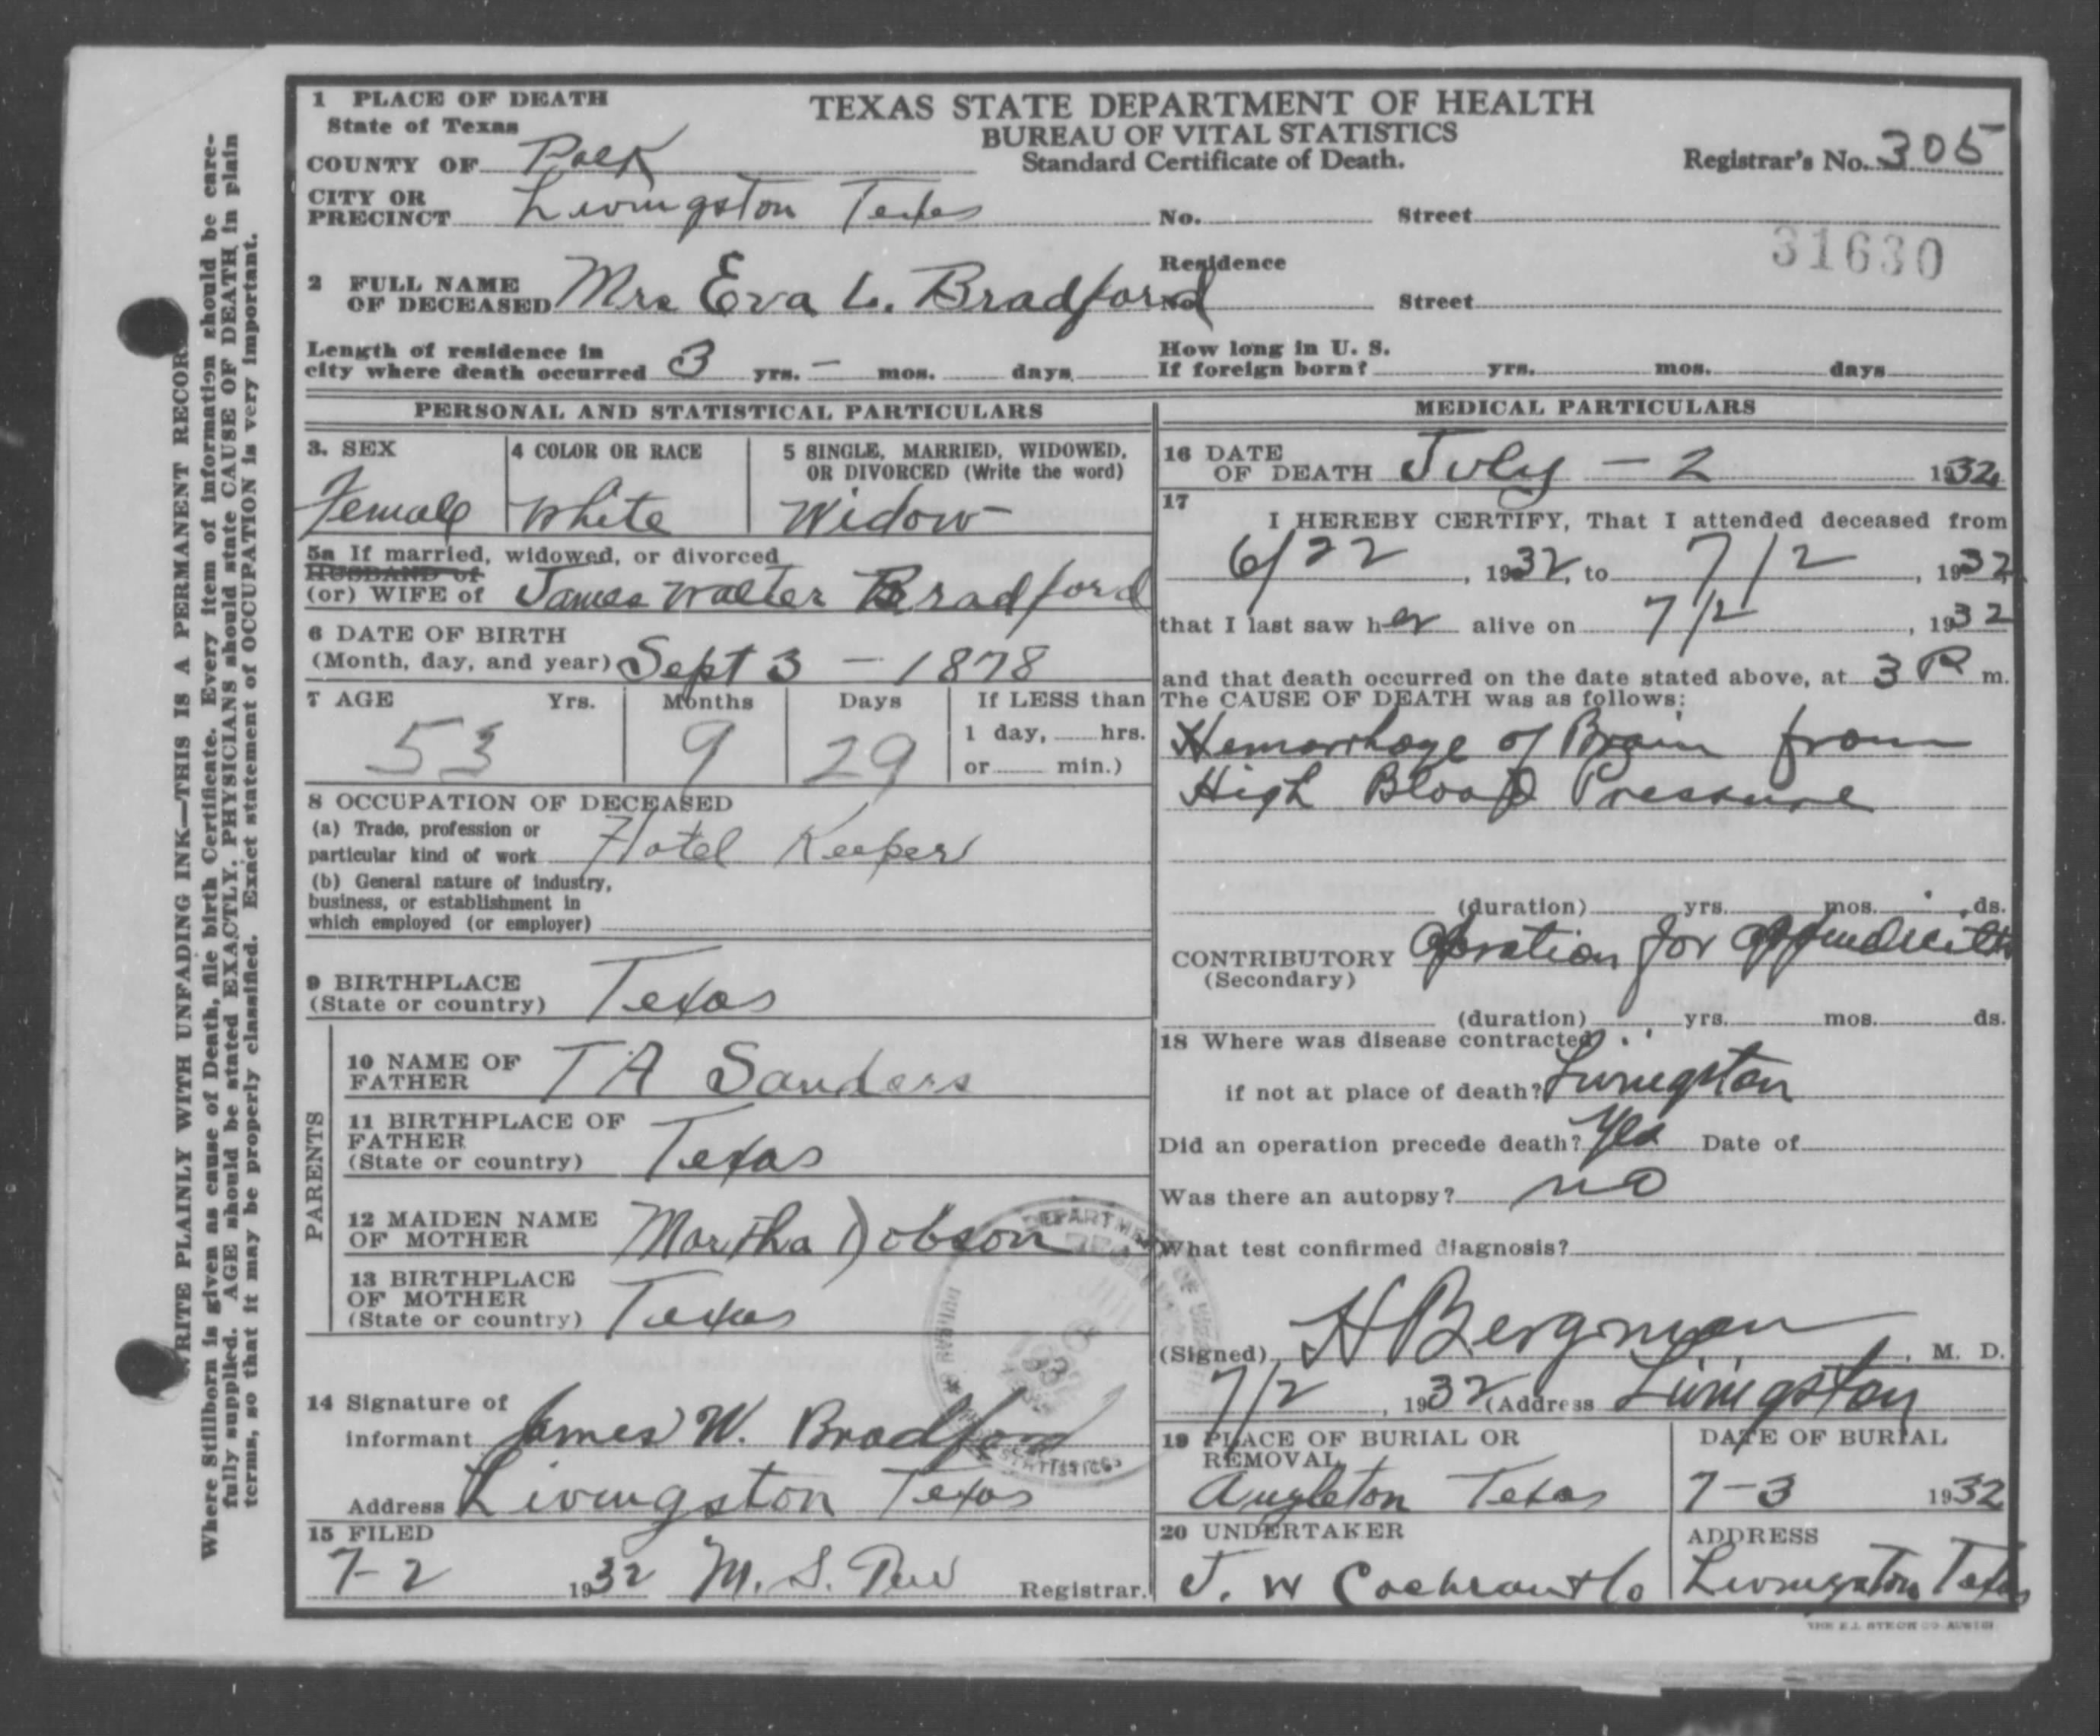 WRITE PLAINLY WITH UNFADING INK—THIS IS A PERMANENT RECOR
Where Stillborn is given as cause of Death, file birth Certificate. Every item of information should be care-
fully supplied. AGE should be stated EXACTLY. PHYSICIANS should state CAUSE OF DEATH in plain
terms, so that it may be properly classified. Exact statement of OCCUPATION is very important.
TEXAS STATE DEPARTMENT OF HEALTH
BUREAU OF VITAL STATISTICS
Standard Certificate of Death.
Registrar's No. 305
31630
1 PLACE OF DEATH
State of Texas
COUNTY OF Polk
CITY OR PRECINCT Livingston Texas No. Street
2 FULL NAME OF DECEASED Mrs Eva L. Bradford
Residence No. Street
Length of residence in city where death occurred 3 yrs. – mos. days
How long in U. S. If foreign born? yrs. mos. days
PERSONAL AND STATISTICAL PARTICULARS
3. SEX Female
4 COLOR OR RACE White
5 SINGLE, MARRIED, WIDOWED, OR DIVORCED (Write the word) Widow
5a If married, widowed, or divorced
HUSBAND of
(or) WIFE of James Walter Bradford
6 DATE OF BIRTH
(Month, day, and year) Sept 3 – 1878
7 AGE Yrs. Months Days If LESS than
53 9 29 1 day, hrs.
or min.)
8 OCCUPATION OF DECEASED
(a) Trade, profession or
particular kind of work Hotel Keeper
(b) General nature of industry,
business, or establishment in
which employed (or employer)
9 BIRTHPLACE
(State or country) Texas
PARENTS
10 NAME OF FATHER T A Sanders
11 BIRTHPLACE OF FATHER
(State or country) Texas
12 MAIDEN NAME OF MOTHER Martha Dobson
13 BIRTHPLACE OF MOTHER
(State or country) Texas
14 Signature of
informant James W. Bradford
Address Livingston Texas
15 FILED
7-2 1932 M. S. Registrar.
MEDICAL PARTICULARS
16 DATE OF DEATH July – 2 1932
17
I HEREBY CERTIFY, That I attended deceased from
6/22, 1932, to 7/2, 1932
that I last saw her alive on 7/2, 1932
and that death occurred on the date stated above, at 3 P m.
The CAUSE OF DEATH was as follows:
Hemorrhage of Brain from
High Blood Pressure
(duration) yrs. mos. ds.
CONTRIBUTORY Operation for appendicitis
(Secondary)
(duration) yrs. mos. ds.
18 Where was disease contracted
if not at place of death? Livingston
Did an operation precede death? Yes Date of
Was there an autopsy? no
What test confirmed diagnosis?
(Signed) H Bergman, M. D.
7/2, 1932 (Address Livingston
19 PLACE OF BURIAL OR REMOVAL DATE OF BURIAL
Angleton Texas 7-3 1932
20 UNDERTAKER ADDRESS
J. W Cochran & Co Livingston Texas